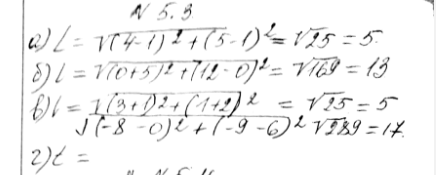 N 5.3
а) l = √(4-1)²+(5-1)² = √25 = 5.
б) l = √(0+5)²+(12-0)² = √169 = 13
в) l = √(3+1)²+(1+2)² = √25 = 5
√(-8-0)²+(-9-6)² √289 = 17.
г) l =